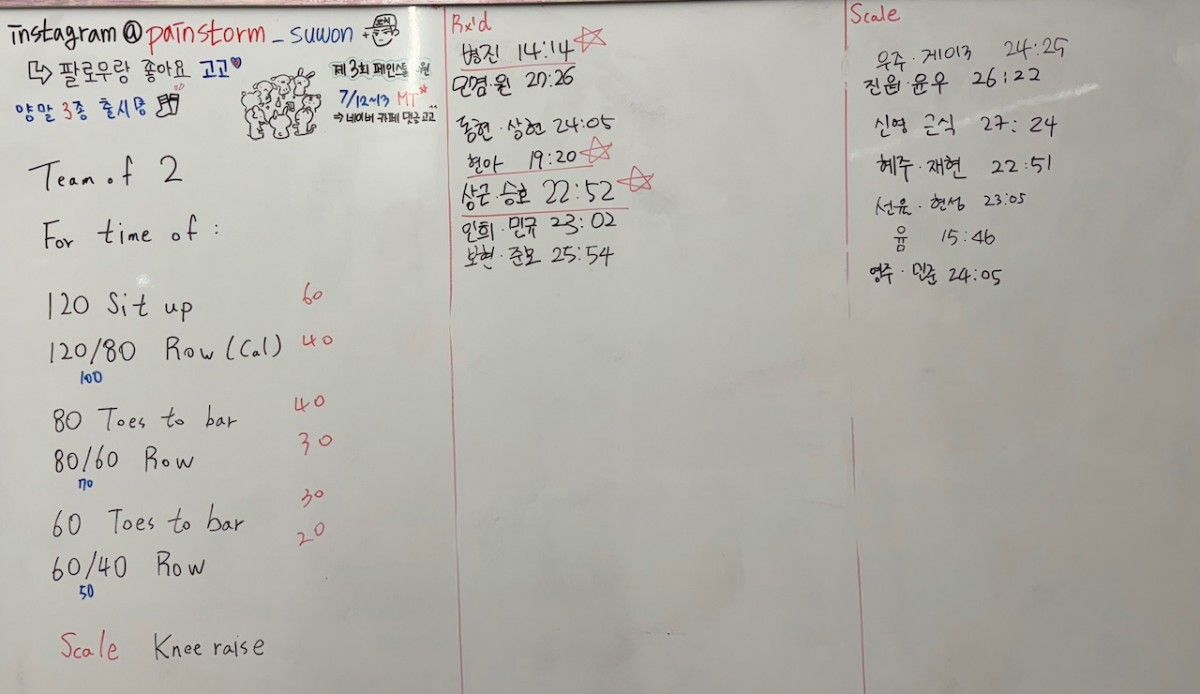 instagram @ painstorm _ suwon
↳ 팔로우랑 좋아요 고고♥
양말 3종 출시중
제 3회 페인스톰 수원
7/12~13 MT
⇒ 네이버 카페 댓글 고고
Team of 2
For time of :
120 Sit up 60
120/80 Row (Cal) 40
100
80 Toes to bar 40
80/60 Row 30
70
60 Toes to bar 30
60/40 Row 20
50
Scale Knee raise
Rx'd
병진 14:14 ☆
27:26
동현 · 상현 24:05
현아 19:20 ☆
상근 · 승호 22:52 ☆
인희 · 민규 23:02
보현 · 준모 25:54
Scale
우주 · 게이3 24:25
진원 · 윤우 26:22
신영 근식 27:24
혜주 · 재현 22:51
선윤 · 현성 23:05
윰 15:46
영주 · 민준 24:05